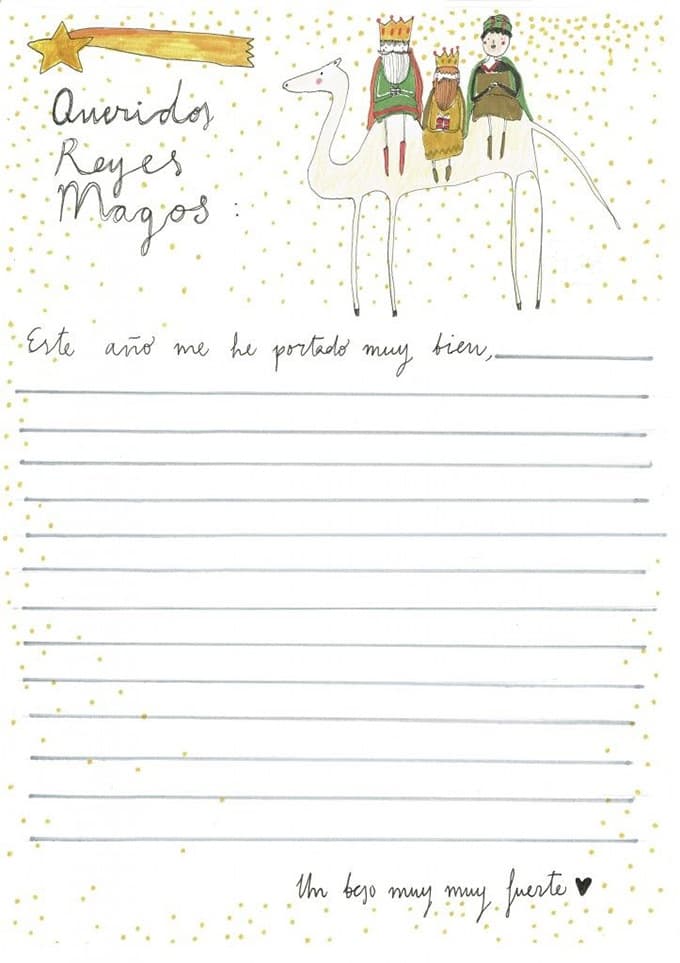 Queridos
Reyes
Magos :
Este año me he portado muy bien,
Un beso muy muy fuerte ♥